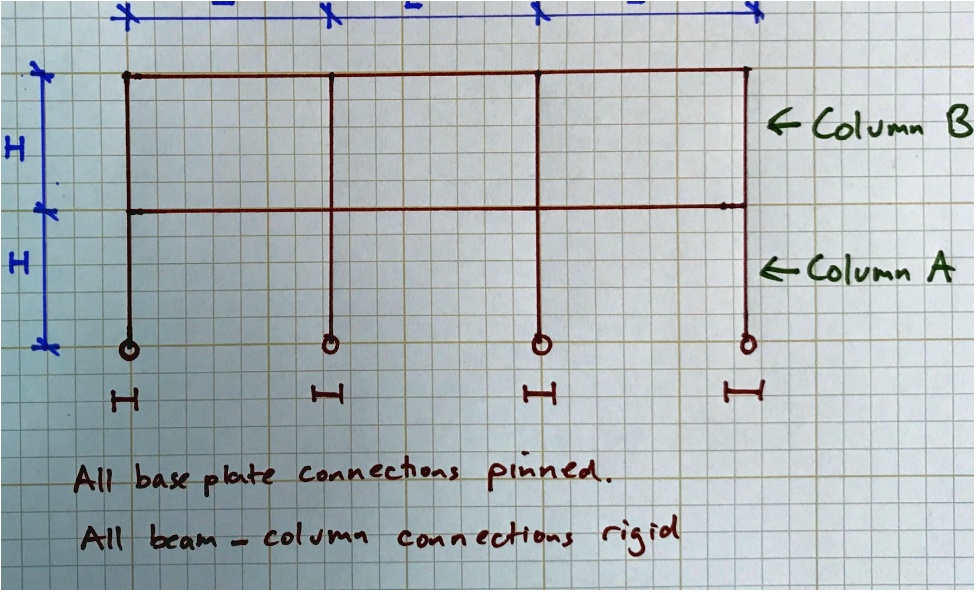 ← Column B
H
H
← Column A
All base plate connections pinned.
All beam - column connections rigid